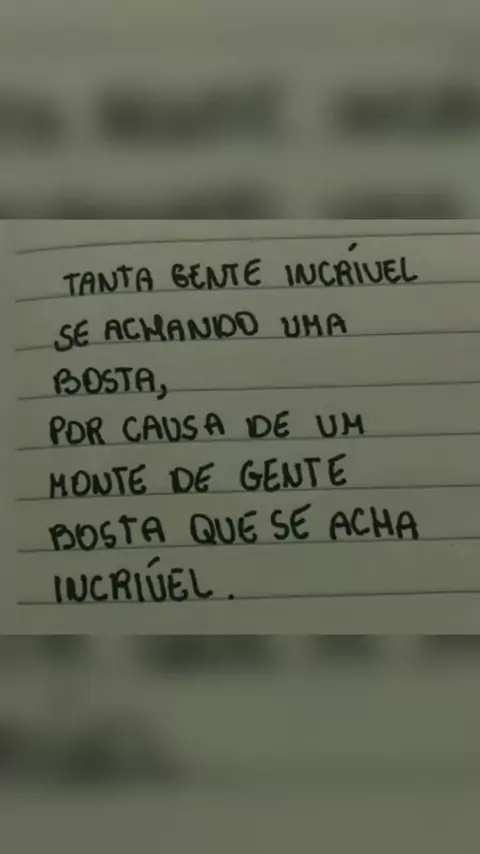 TANTA GENTE INCRÍVEL
SE ACHANDO UMA
BOSTA,
POR CAUSA DE UM
MONTE DE GENTE
BOSTA QUE SE ACHA
INCRÍVEL.